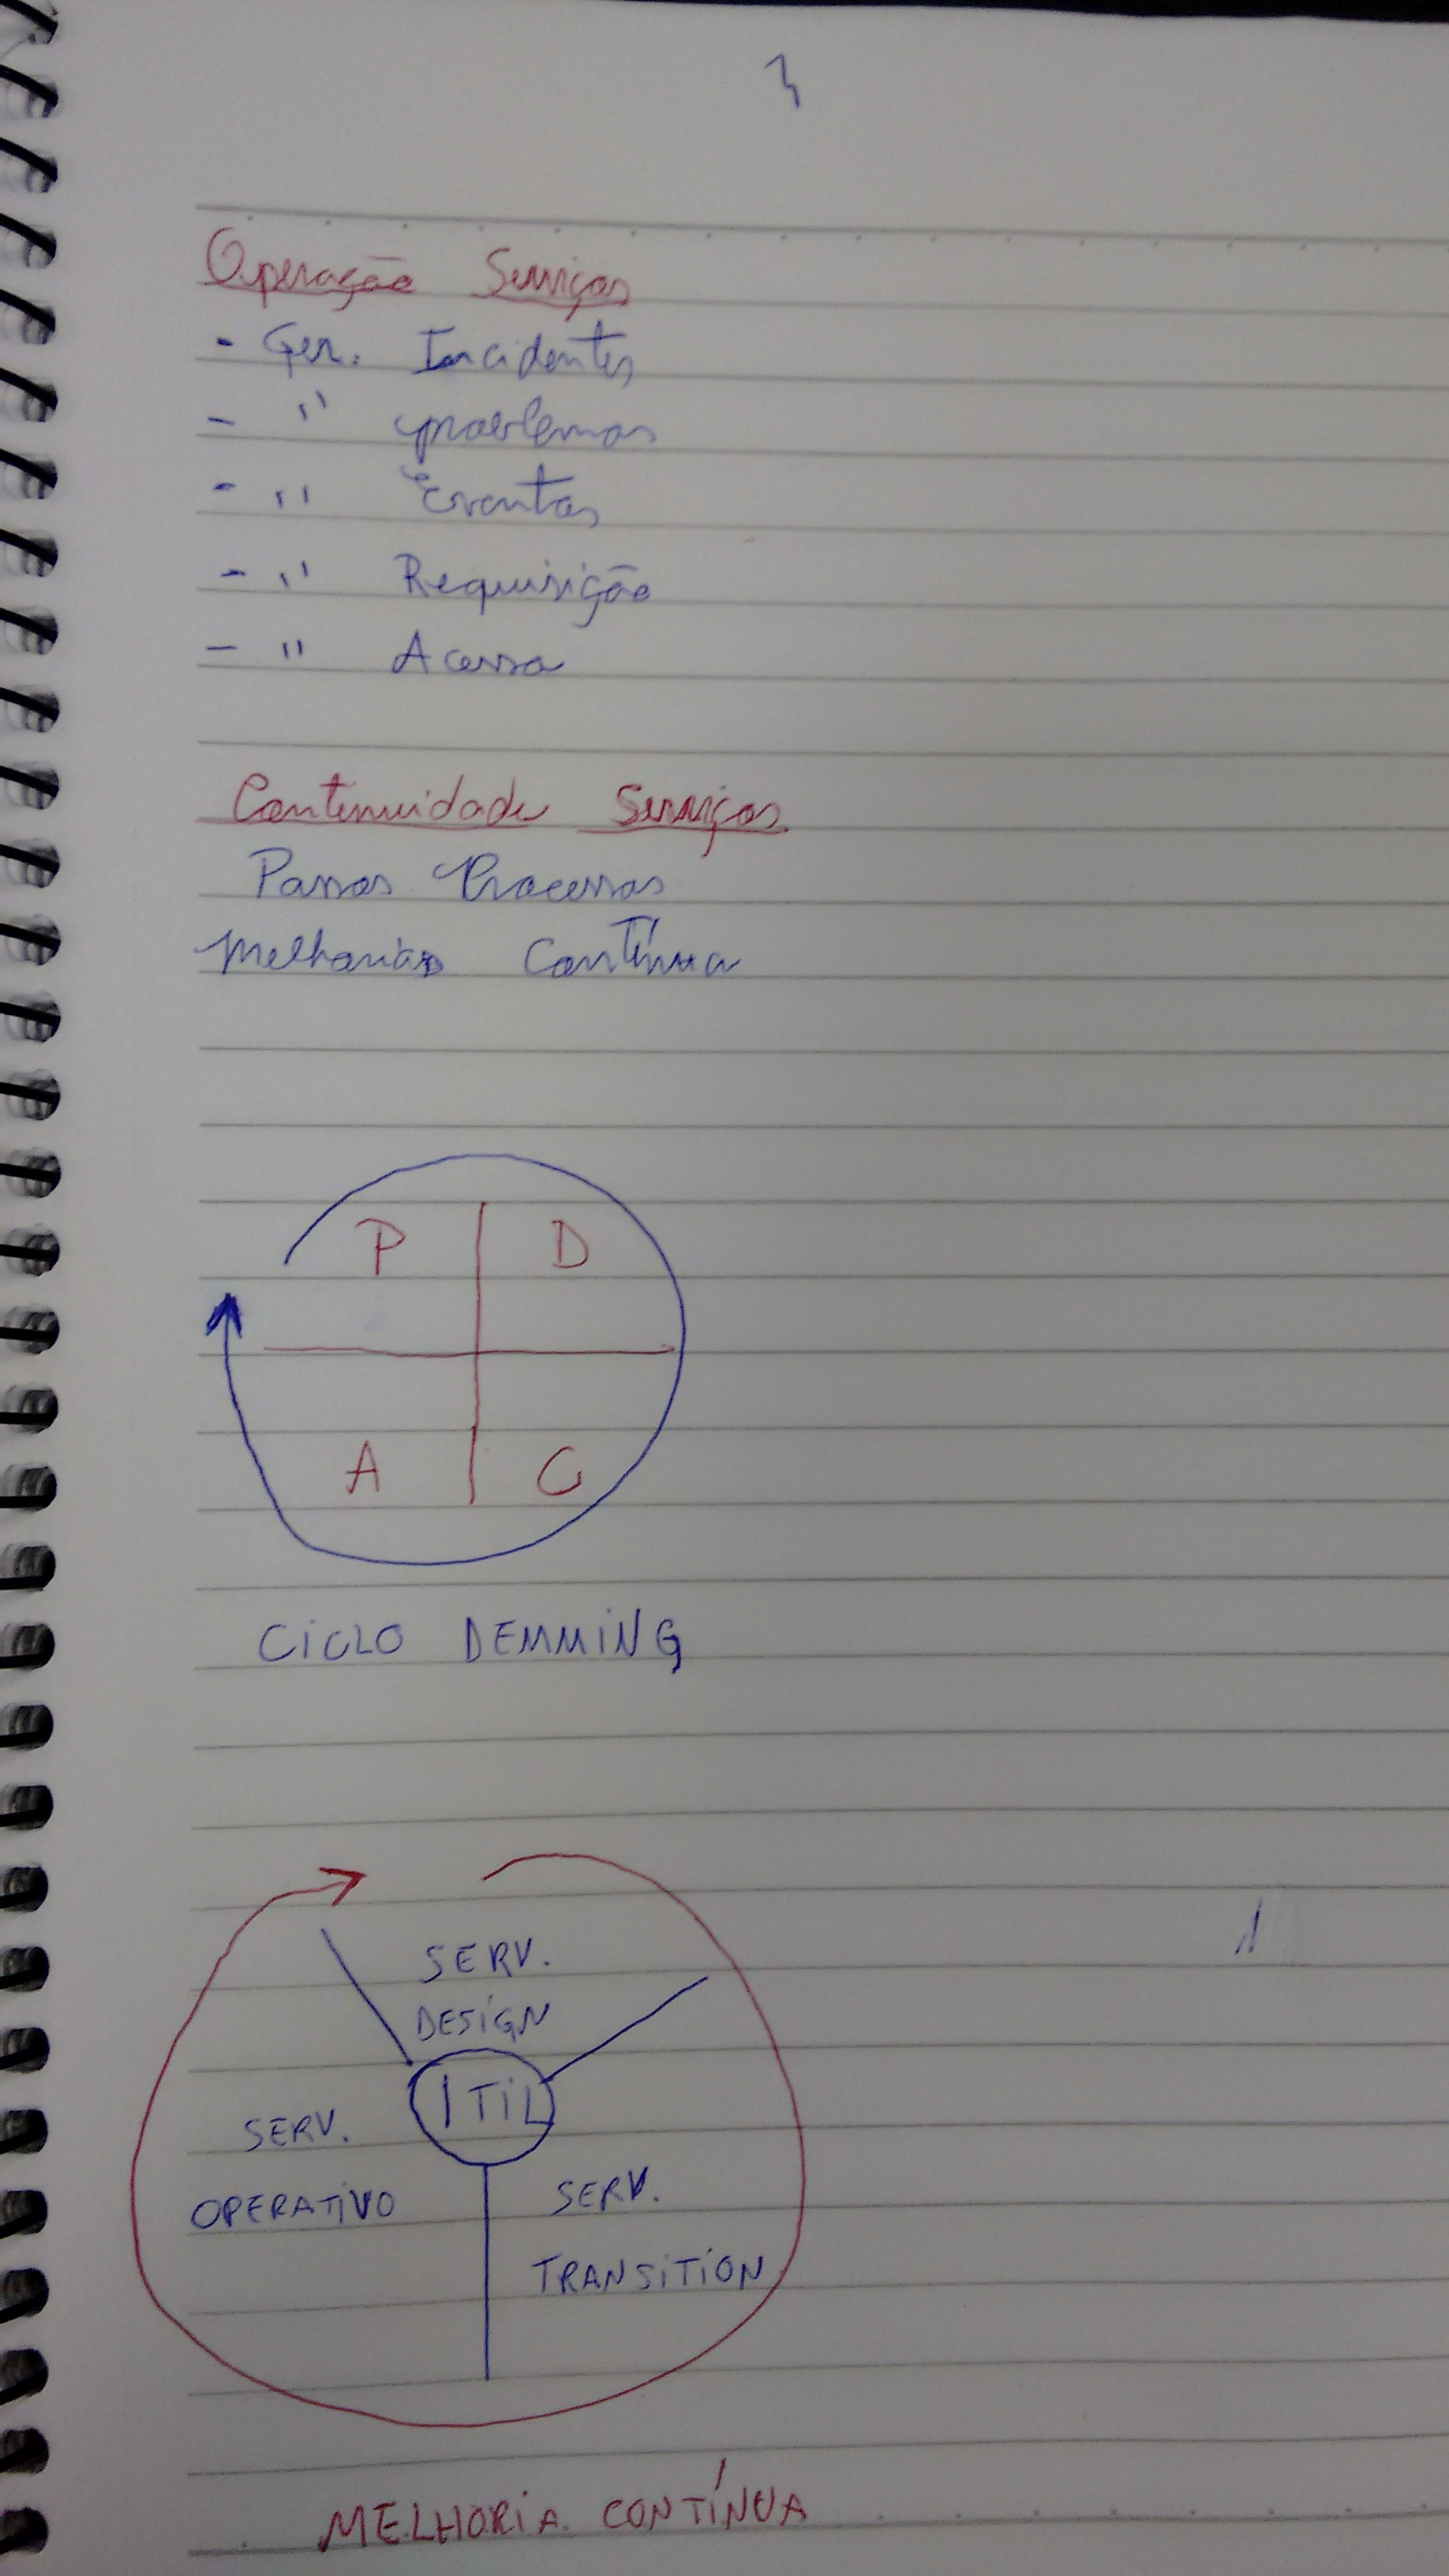 Operação Serviços
- Ger. Incidentes
- " problemas
- " Eventos
- " Requisição
- " Acesso
Continuidade Serviços
Passos Processos
Melhorias Contínua
P D
A C
CICLO DEMMING
SERV.
DESIGN
ITIL
SERV.
OPERATIVO
SERV.
TRANSITION
MELHORIA CONTÍNUA